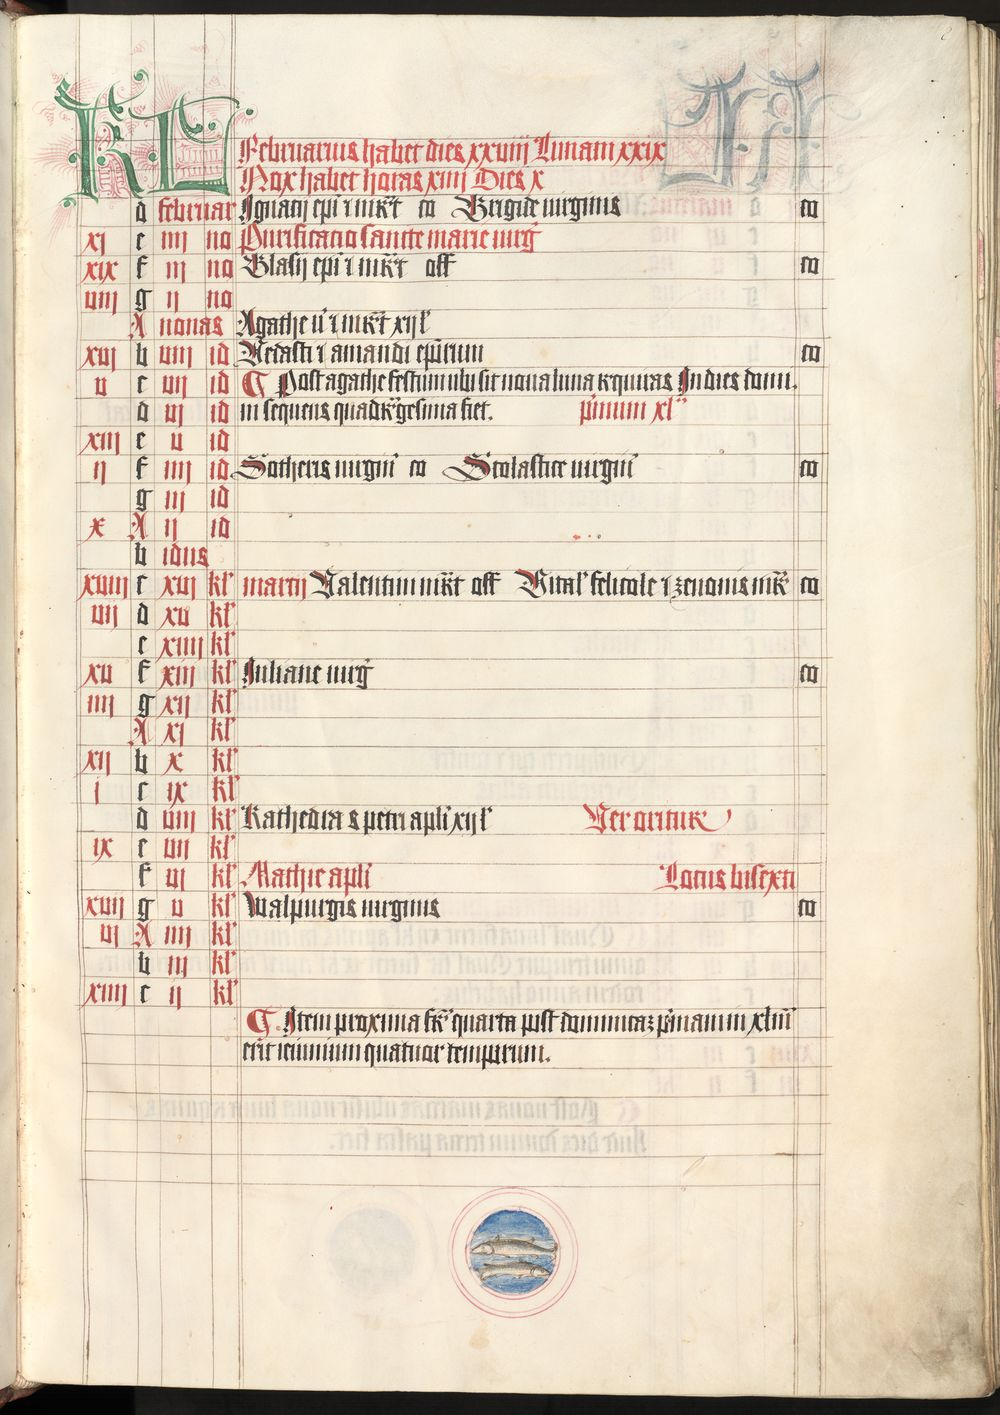 KL
Februarius habet dies xxviij Lunam xxix
Nox habet horas xiiij Dies x
d februar Ignacij epi ⁊ mr̄t co Brigide uirginis co
xj e iiij no Purificacio sancte marie uirḡ
xix f iij no Blasij epi ⁊ mr̄t off co
viij g ij no
A nonas Agathe ū ⁊ mr̄t xij l'
xvj b viij id Vedasti ⁊ amandi ep̄orum co
v c vij id ¶ Post agathe festum ubi sit noua luna requiras In dies domi,
d vj id ni sequens quadr̄gesima fiet. p̄mum xl
xiij e v id
ij f iiij id Sotheris uirgīs co Scolastice uirgīs co
g iij id
x A ij id
b idus
xviij c xvj kl' martij Valentini mr̄t off Vital' felicole ⁊ zenonis mr̄ co
vij d xv kl'
e xiiij kl'
xv f xiij kl' Iuliane uirḡ co
iiij g xij kl'
A xj kl'
xij b x kl'
j c ix kl'
d viij kl' Kathedra s petri apl'i xij l' Ver oritur
ix e vij kl'
f vj kl' Mathie apl'i Locus bisexti
xvij g v kl' Walpurgis uirginis co
vj A iiij kl'
b iij kl'
xiiij c ij kl'
¶ Item proxima fr̄ quarta post dominicaz p̄mam in xlma
erit ieiunium quatuor temporum.